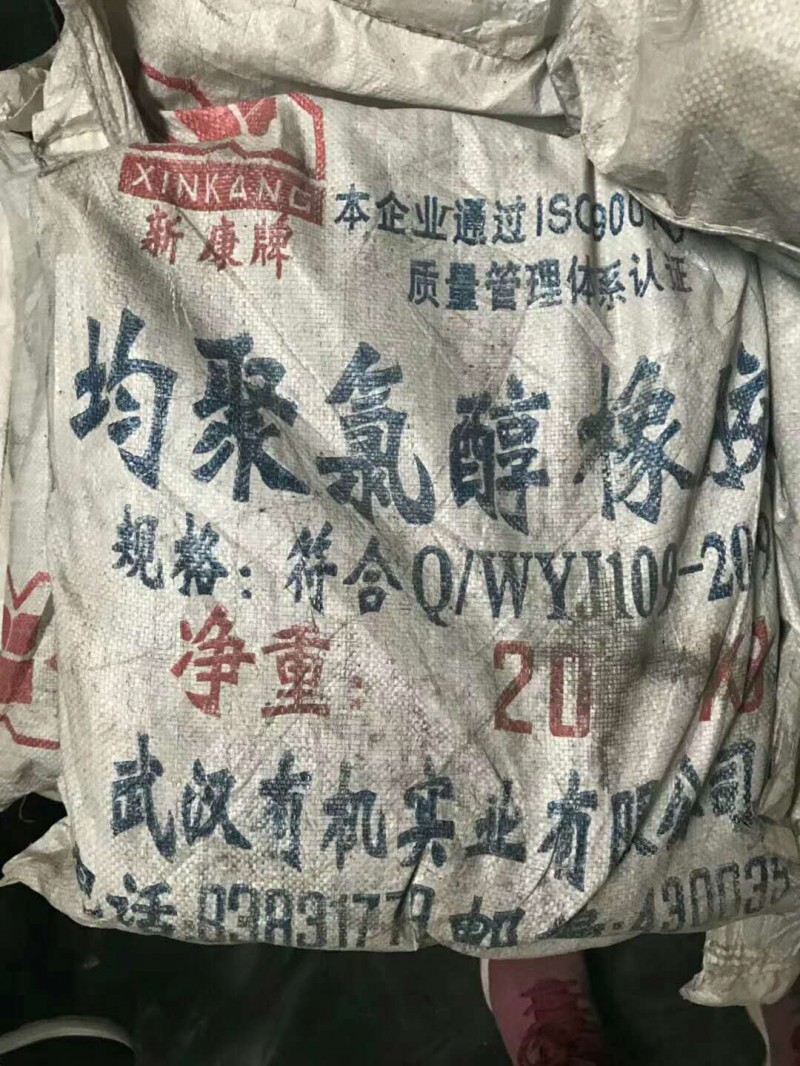 XINKANG
新康牌
本企业通过ISO900
质量管理体系认证
均聚氯醇橡胶
规格：符合Q/WYJ109-209
净重：20 KG
武汉有机实业有限公司
电话:83831778 邮编:430035